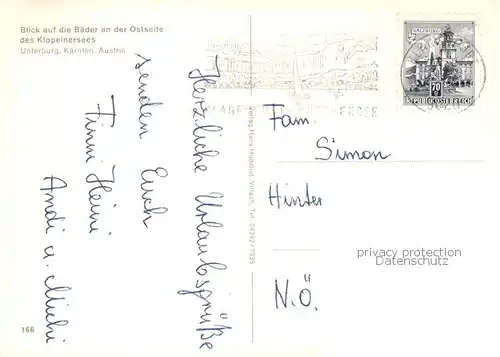 Blick auf die Bäder an der Ostseite
des Klopeinersees
Unterburg, Kärnten, Austria
Herzliche Urlaubsgrüße
senden Euch
Finni Heini
Andi u. Michi
166
SALZBURG
70
REPUBLIK ÖSTERREICH
Fam.
Simon
Hinter
N.Ö.
privacy protection
Datenschutz